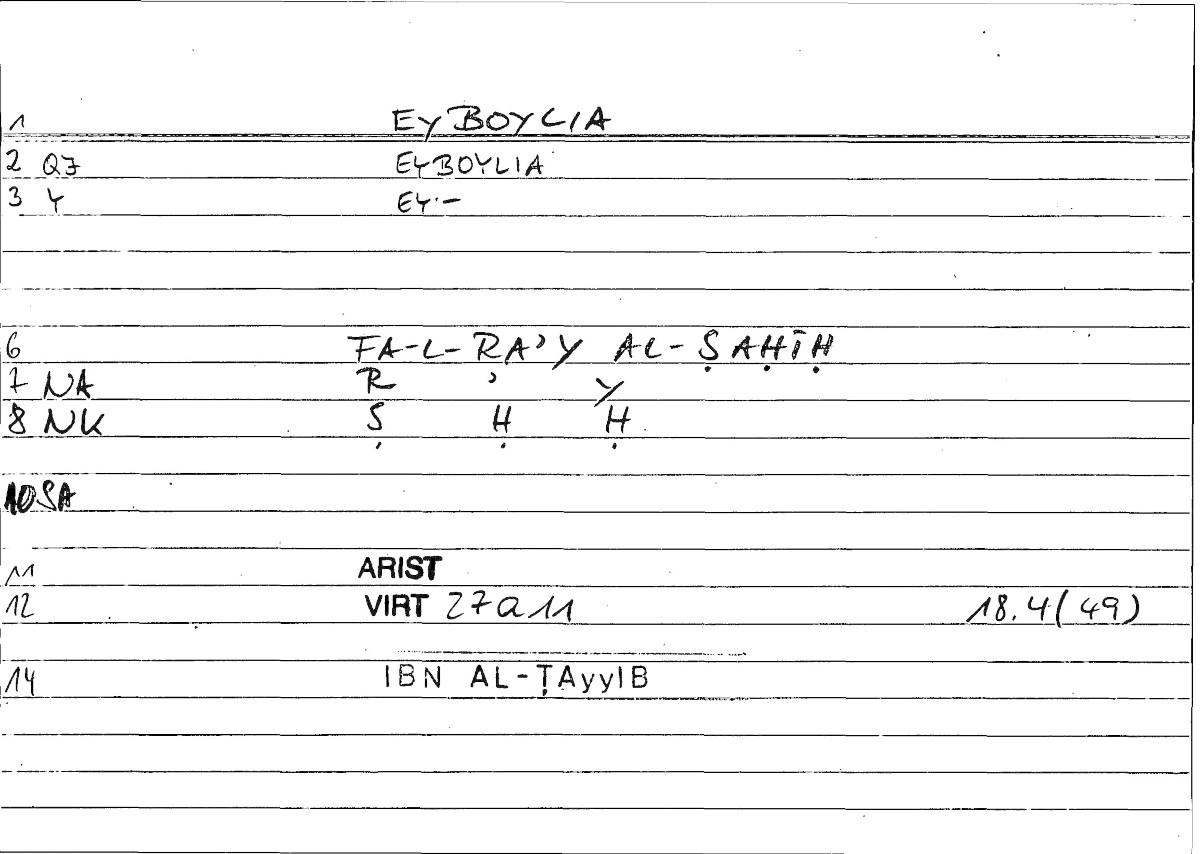 1 EYBOYLIA
2 Q7 EYBOYLIA
3 Y EY·-
6 FA-L-RA’Y AL-ṢAḤĪḤ
7 NA R ’ Y
8 NK Ṣ Ḥ Ḥ
10 SA
11 ARIST
12 VIRT 27a11 18.4(49)
14 IBN AL-ṬAyyIB